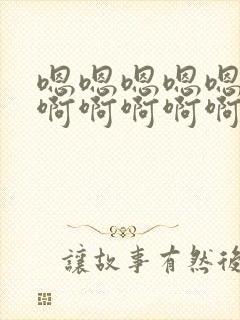 嗯嗯嗯嗯嗯
啊啊啊啊啊
讓故事有然後